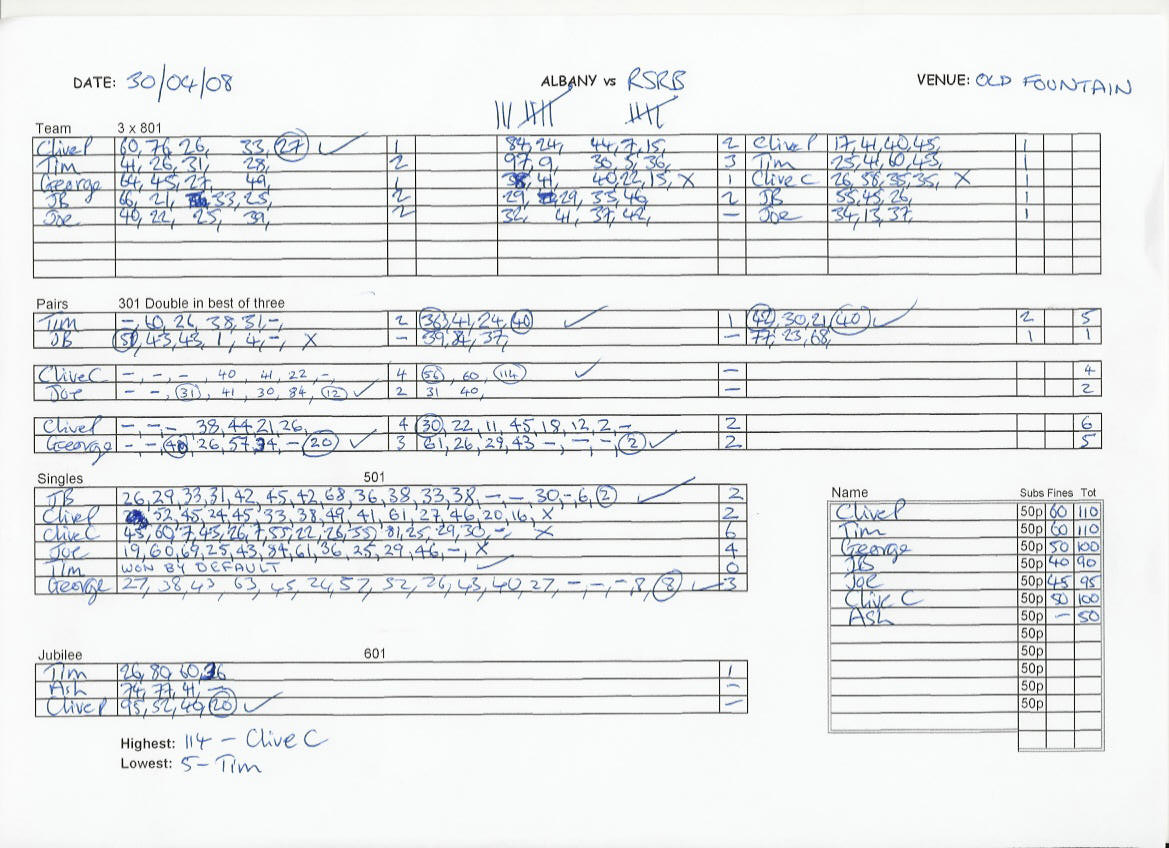 DATE: 30/04/08 ALBANY vs RSRB VENUE: OLD FOUNTAIN
Team 3 x 801
Clive P 60, 76, 26, 33, 27 ✓ 1 84, 24, 44, 7, 15, 2 Clive P 17, 41, 40, 45, 1
Tim 41, 26, 31, 28, 2 97, 9, 30, 5, 36, 3 Tim 25, 41, 60, 43, 1
George 64, 45, 27, 49, 1 41, 40, 22, 15, X 1 Clive C 26, 58, 35, 35, X 1
JB 66, 21, 33, 25, 2 29, 29, 33, 46, 2 JB 55, 45, 26, 1
Joe 40, 22, 25, 39, 2 32, 41, 37, 42, – Joe 34, 13, 37, 1
Pairs 301 Double in best of three
Tim –, 60, 26, 38, 31, –, 2 36, 41, 24, 40 ✓ 1 42, 30, 21, 40 ✓ 2 5
JB 43, 43, 1, 4, –, X – 39, 84, 37, – 77, 23, 68, 1 1
Clive C –, –, –, 40, 41, 22, –, 4 56, 60, 114 ✓ – 4
Joe –, –, 31, 41, 30, 84, 12 ✓ 2 31 40, – 2
Clive P –, –, –, 38, 44, 21, 26, 4 30, 22, 11, 45, 18, 12, 2, – 2 6
George –, –, 26, 57, 34, –, 20 ✓ 3 61, 26, 29, 43, –, –, –, 2 ✓ 2 5
Singles 501
JB 26, 29, 33, 31, 42, 45, 42, 68, 36, 38, 33, 38, –, –, 30, –, 6, 2 ✓ 2
Clive P 52, 45, 24, 45, 33, 38, 49, 41, 61, 27, 46, 20, 16, X 2
Clive C 45, 60, 7, 45, 26, 7, 55, 22, 26, 55, 81, 25, 29, 30, –, X 6
Joe 19, 60, 69, 25, 43, 84, 61, 36, 25, 29, 46, –, X 4
Tim WON BY DEFAULT ✓ 0
George 27, 38, 43, 63, 45, 24, 57, 52, 26, 43, 40, 27, –, –, –, 8, 8 ✓ 3
Name Subs Fines Tot
Clive P 50p 60 110
Tim 50p 60 110
George 50p 50 100
JB 50p 40 90
Joe 50p 45 95
Clive C 50p 50 100
Ash 50p – 50
50p
50p
50p
50p
50p
Jubilee 601
Tim 26, 80, 60, 36 1
Ash 74, 77, 41, – –
Clive P 95, 52, 40, 20 ✓ –
Highest: 114 – Clive C
Lowest: 5 – Tim